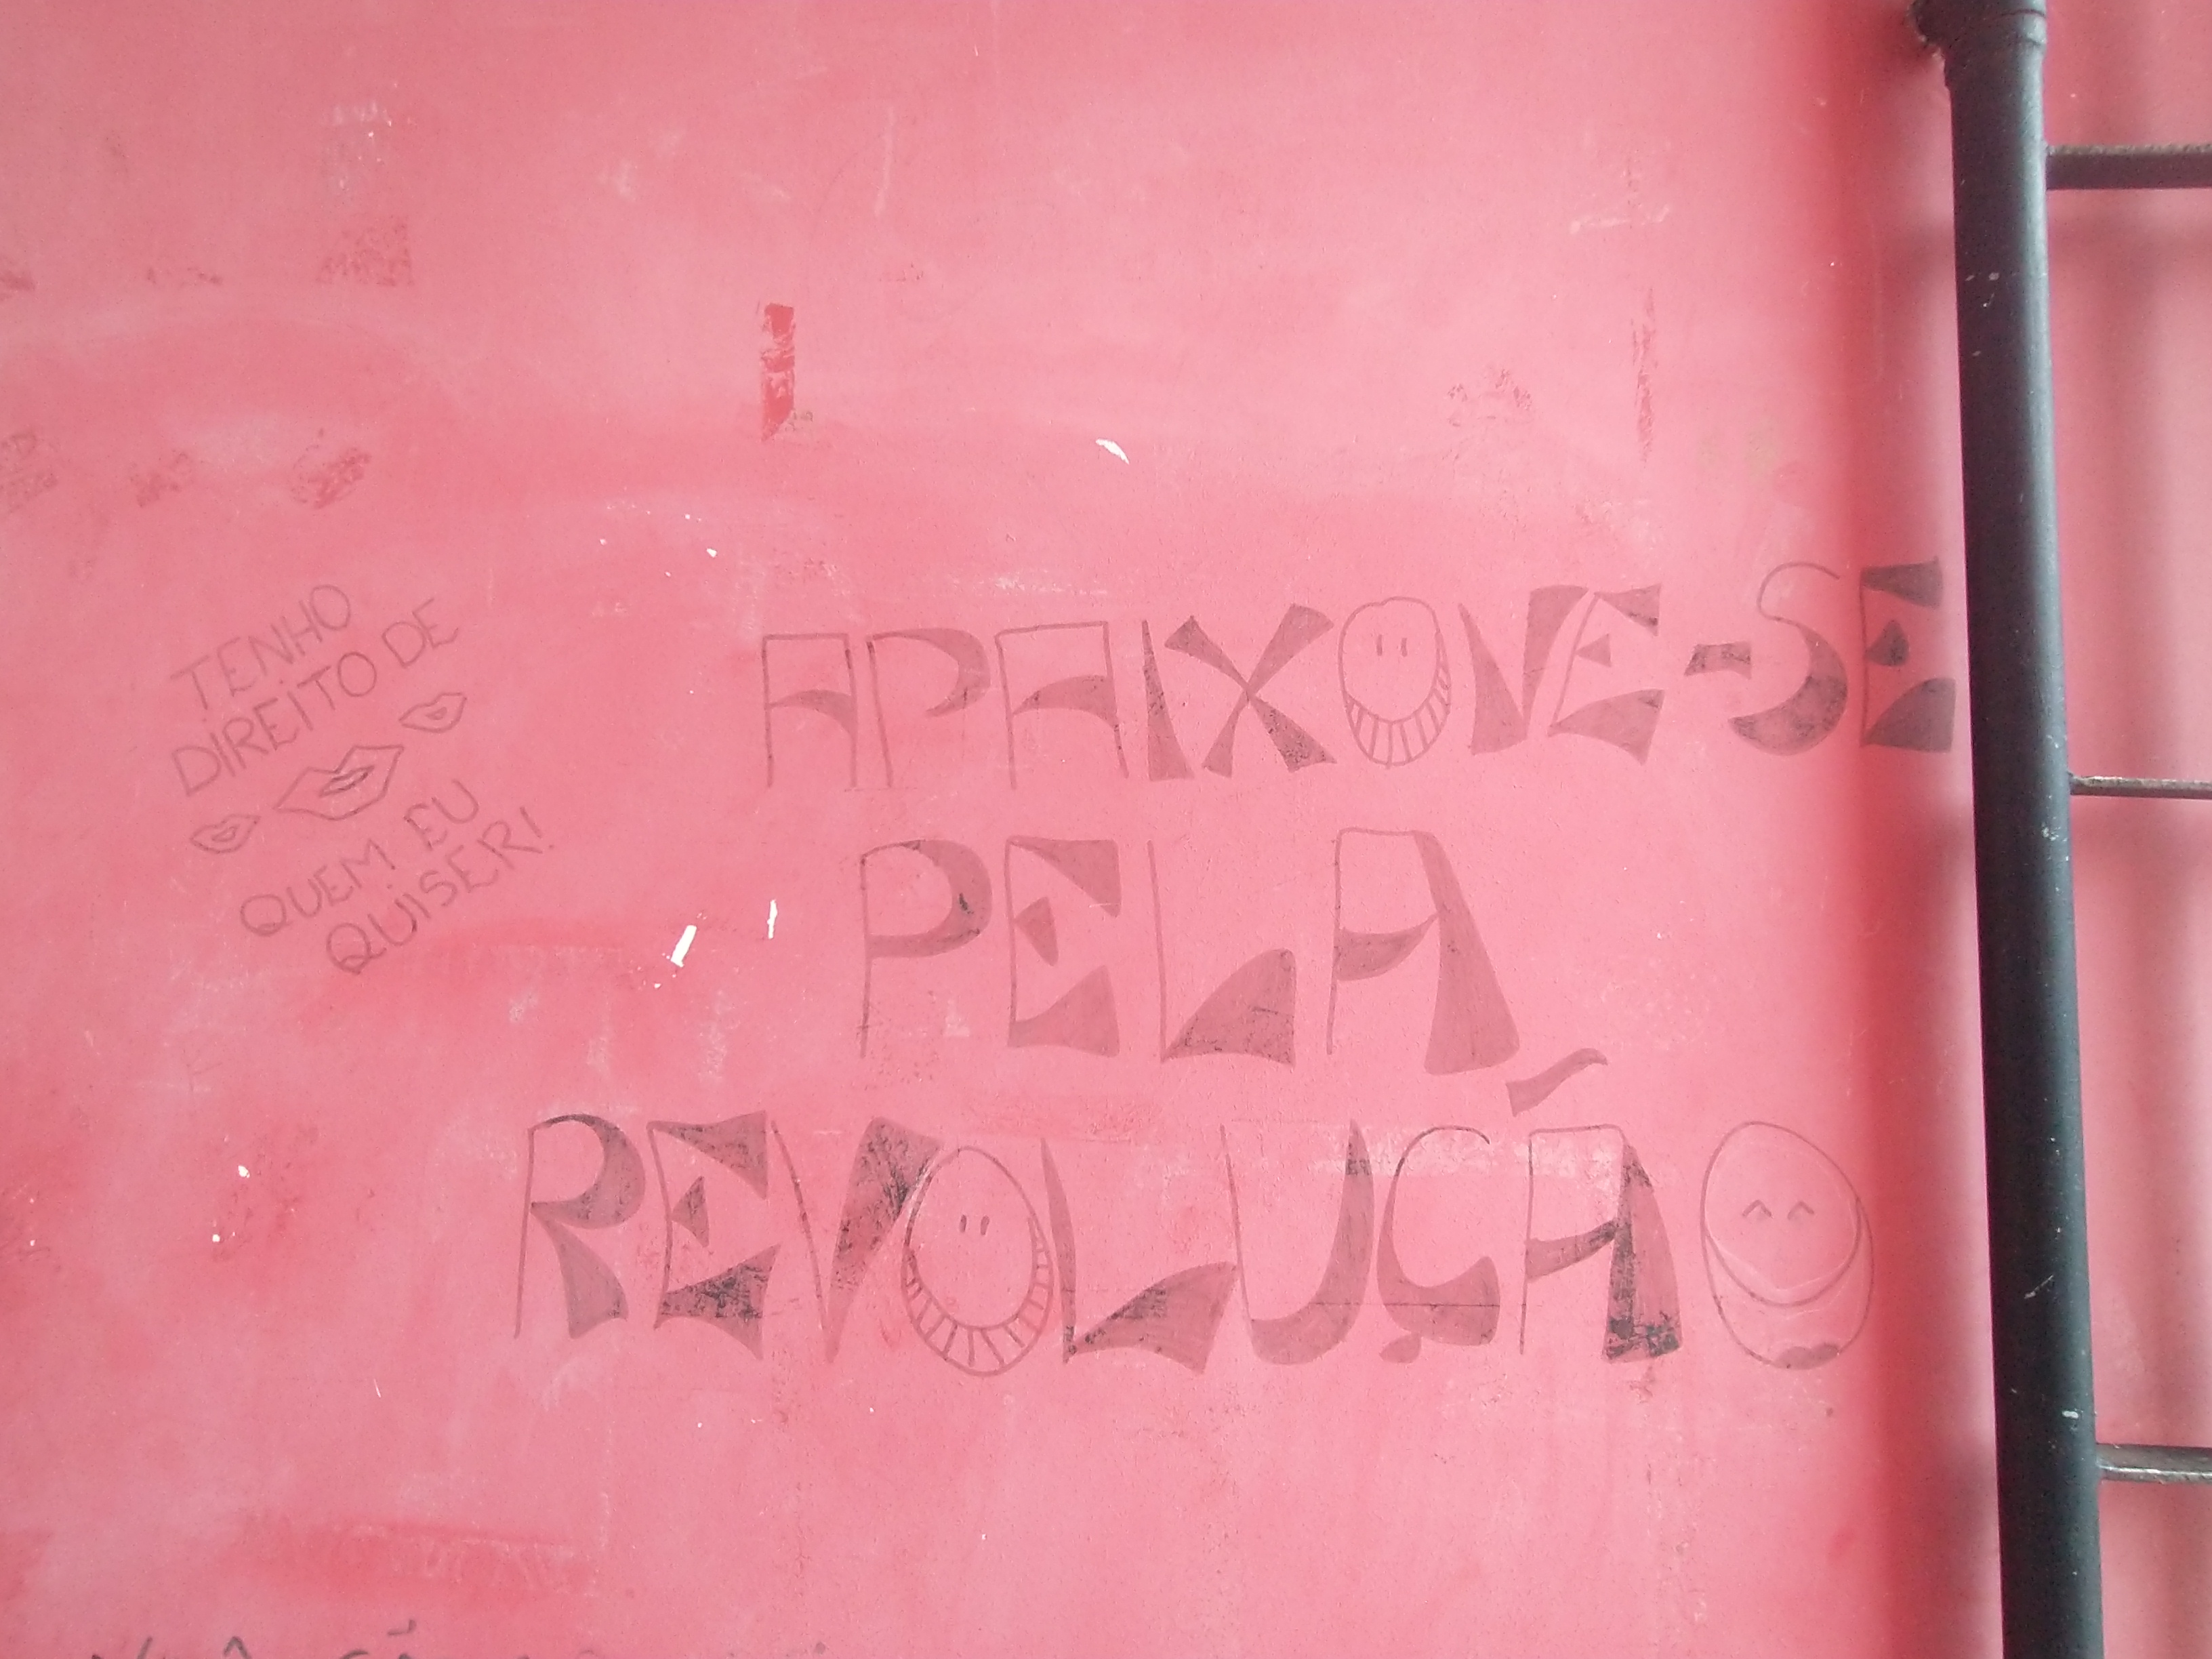 TENHO
DIREITO DE
QUEM EU
QUISER!
APAIXONE-SE
PELA
REVOLUÇÃO